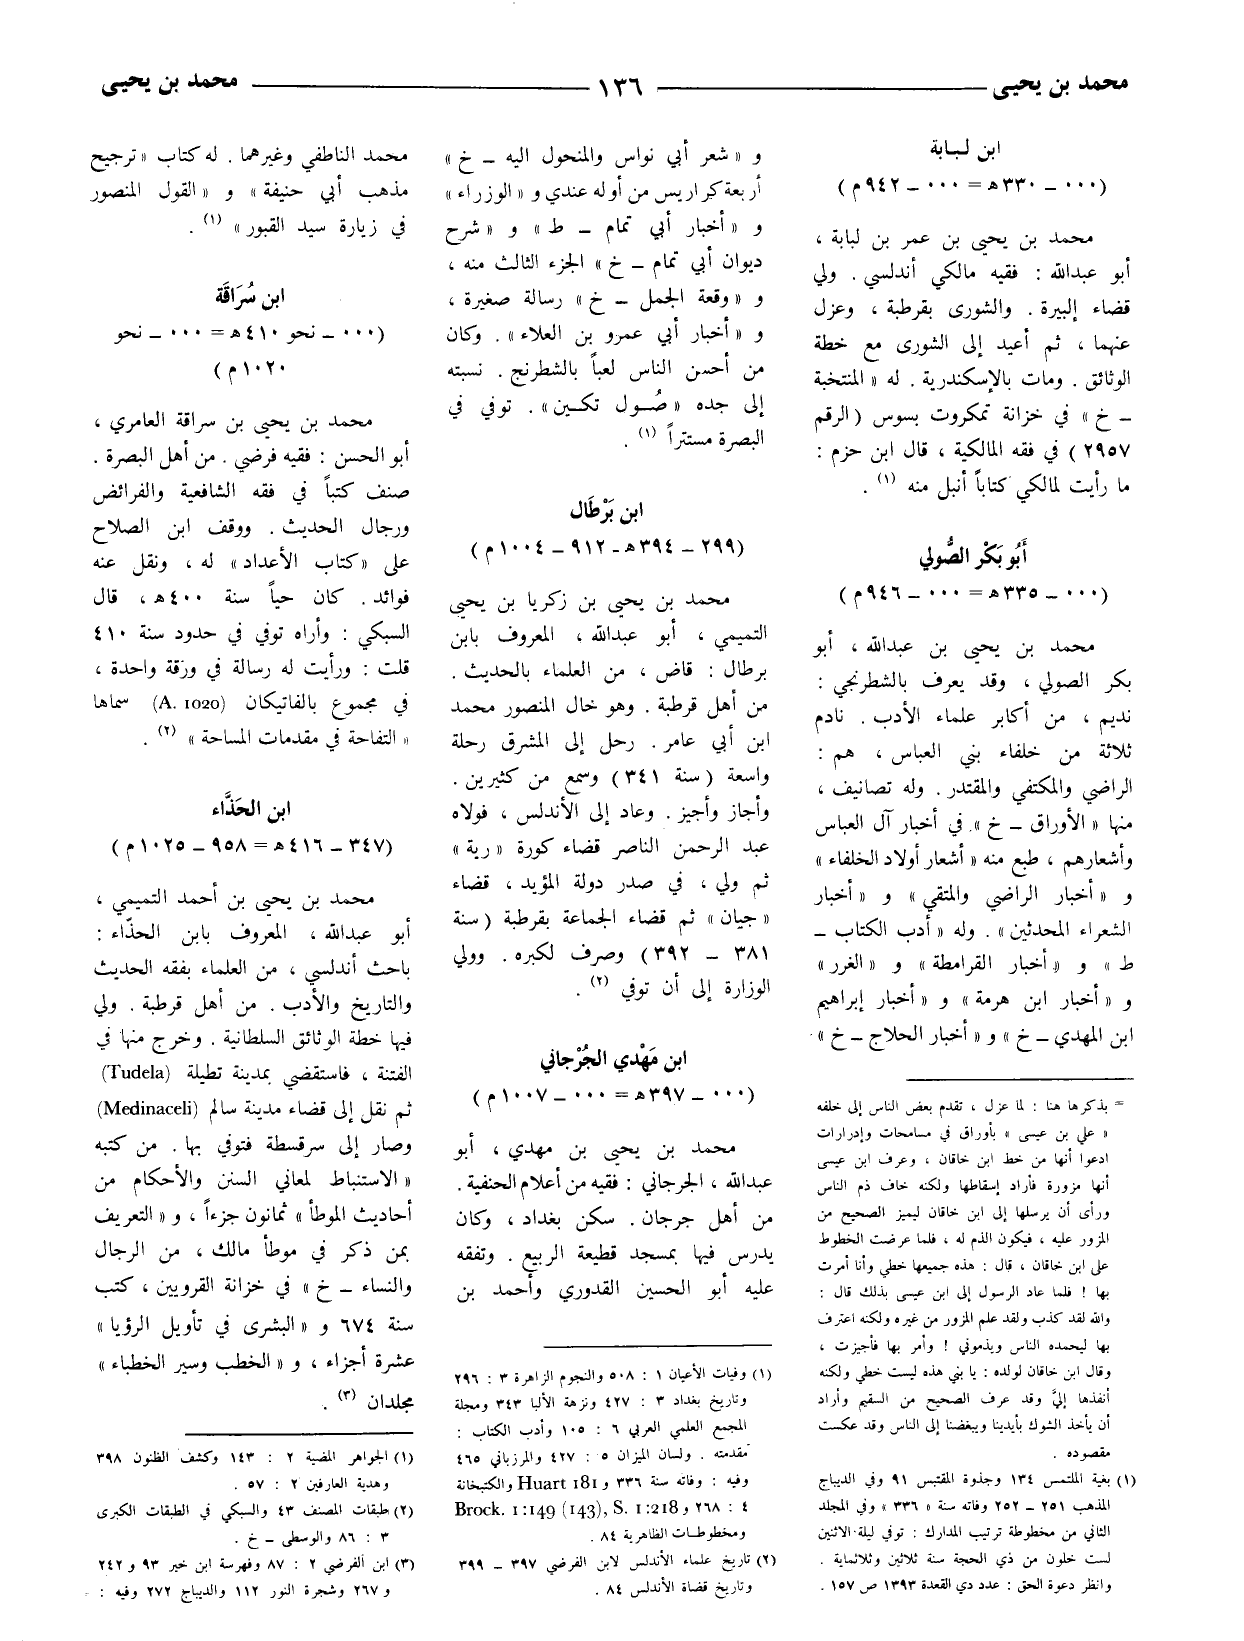 محمد بن يحيى ١٣٦ محمد بن يحيى
ابن لبابة
(٠٠٠ ـ ٣٣٠ هـ = ٠٠٠ ـ ٩٤٢ م)
محمد بن يحيى بن عمر بن لبابة ،
أبو عبدالله : فقيه مالكي أندلسي . ولي
قضاء إلبيرة . والشورى بقرطبة ، وعزل
عنهما ، ثم أعيد إلى الشورى مع خطة
الوثائق . ومات بالإسكندرية . له « المنتخبة
ـ خ » في خزانة تمكروت بسوس (الرقم
٢٩٥٧ ) في فقه المالكية ، قال ابن حزم :
ما رأيت لمالكي كتاباً أنبل منه (١) .
أَبُو بَكْر الصُّولي
(٠٠٠ ـ ٣٣٥ هـ = ٠٠٠ ـ ٩٤٦ م)
محمد بن يحيى بن عبدالله ، أبو
بكر الصولي ، وقد يعرف بالشطرنجي :
نديم ، من أكابر علماء الأدب . نادم
ثلاثة من خلفاء بني العباس ، هم :
الراضي والمكتفي والمقتدر . وله تصانيف ،
منها « الأوراق ـ خ » في أخبار آل العباس
وأشعارهم ، طبع منه « أشعار أولاد الخلفاء »
و « أخبار الراضي والمتقي » و « أخبار
الشعراء المحدثين » . وله « أدب الكتاب ـ
ط » و « أخبار القرامطة » و « الغرر »
و « أخبار ابن هرمة » و « أخبار إبراهيم
ابن المهدي ـ خ » و « أخبار الحلاج ـ خ »
= بذكرها هنا : لما عزل ، تقدم بعض الناس إلى خلفه
« علي بن عيسى » بأوراق في مسامحات وإدرارات
ادعوا أنها من خط ابن خاقان ، وعرف ابن عيسى
أنها مزورة فأراد إسقاطها ولكنه خاف ذم الناس
ورأى أن يرسلها إلى ابن خاقان ليميز الصحيح من
المزور عليه ، فيكون الذم له ، فلما عرضت الخطوط
على ابن خاقان ، قال : هذه جميعها خطي وأنا أمرت
بها ! فلما عاد الرسول إلى ابن عيسى بذلك قال :
والله لقد كذب ولقد علم المزور من غيره ولكنه اعترف
بها ليحمده الناس ويذموني ! وأمر بها فأجيزت ،
وقال ابن خاقان لولده : يا بني هذه ليست خطي ولكنه
أنفذها إليّ وقد عرف الصحيح من السقيم وأراد
أن يأخذ الشوك بأيدينا ويبغضنا إلى الناس وقد عكست
مقصوده .
(١) بغية الملتمس ١٣٤ وجذوة المقتبس ٩١ وفي الديباج
المذهب ٢٥١ ـ ٢٥٢ وفاته سنة « ٣٣٦ » وفي المجلد
الثاني من مخطوطة ترتيب المدارك : توفي ليلة الاثنين
لست خلون من ذي الحجة سنة ثلاثين وثلاثماية .
وانظر دعوة الحق : عدد ذي القعدة ١٣٩٣ ص ١٥٧ .
و « شعر أبي نواس والمنحول اليه ـ خ »
أربعة كراريس من أوله عندي و « الوزراء »
و « أخبار أبي تمام ـ ط » و « شرح
ديوان أبي تمام ـ خ » الجزء الثالث منه ،
و « وقعة الجمل ـ خ » رسالة صغيرة ،
و « أخبار أبي عمرو بن العلاء » . وكان
من أحسن الناس لعباً بالشطرنج . نسبته
إلى جده « صُول تكين » . توفي في
البصرة مستتراً (١) .
ابن بَرْطَال
(٢٩٩ ـ ٣٩٤ هـ ـ ٩١٢ ـ ١٠٠٤ م)
محمد بن يحيى بن زكريا بن يحيى
التميمي ، أبو عبدالله ، المعروف بابن
برطال : قاض ، من العلماء بالحديث .
من أهل قرطبة . وهو خال المنصور محمد
ابن أبي عامر . رحل إلى المشرق رحلة
واسعة (سنة ٣٤١) وسمع من كثيرين .
وأجاز وأجيز . وعاد إلى الأندلس ، فولاه
عبد الرحمن الناصر قضاء كورة « رية »
ثم ولي ، في صدر دولة المؤيد ، قضاء
« جيان » ثم قضاء الجماعة بقرطبة (سنة
٣٨١ ـ ٣٩٢) وصرف لكبره . وولي
الوزارة إلى أن توفي (٢) .
ابن مَهْدي الجُرْجاني
(٠٠٠ ـ ٣٩٧ هـ = ٠٠٠ ـ ١٠٠٧ م)
محمد بن يحيى بن مهدي ، أبو
عبدالله ، الجرجاني : فقيه من أعلام الحنفية .
من أهل جرجان . سكن بغداد ، وكان
يدرس فيها بمسجد قطيعة الربيع . وتفقه
عليه أبو الحسين القدوري وأحمد بن
(١) وفيات الأعيان ١ : ٥٠٨ والنجوم الزاهرة ٣ : ٢٩٦
وتاريخ بغداد ٣ : ٤٢٧ ونزهة الألبا ٣٤٣ ومجلة
المجمع العلمي العربي ٦ : ١٠٥ وأدب الكتاب :
مقدمته . ولسان الميزان ٥ : ٤٢٧ والمرزباني ٤٦٥
وفيه : وفاته سنة ٣٣٦ و Huart 181 والكتبخانة
٤ : ٢٦٨ و Brock. 1:149 (143), S. 1:218
ومخطوطات الظاهرية ٨٤ .
(٢) تاريخ علماء الأندلس لابن الفرضي ٣٩٧ ـ ٣٩٩
وتاريخ قضاة الأندلس ٨٤ .
محمد الناطفي وغيرهما . له كتاب « ترجيح
مذهب أبي حنيفة » و « القول المنصور
في زيارة سيد القبور » (١) .
ابن سُرَاقَة
(٠٠٠ ـ نحو ٤١٠ هـ = ٠٠٠ ـ نحو
١٠٢٠ م)
محمد بن يحيى بن سراقة العامري ،
أبو الحسن : فقيه فرضي . من أهل البصرة .
صنف كتباً في فقه الشافعية والفرائض
ورجال الحديث . ووقف ابن الصلاح
على « كتاب الأعداد » له ، ونقل عنه
فوائد . كان حياً سنة ٤٠٠ هـ ، قال
السبكي : وأراه توفي في حدود سنة ٤١٠
قلت : ورأيت له رسالة في ورقة واحدة ،
في مجموع بالفاتيكان (A. 1020) سماها
« التفاحة في مقدمات المساحة » (٢) .
ابن الحَذَّاء
(٣٤٧ ـ ٤١٦ هـ = ٩٥٨ ـ ١٠٢٥ م)
محمد بن يحيى بن أحمد التميمي ،
أبو عبدالله ، المعروف بابن الحذّاء :
باحث أندلسي ، من العلماء بفقه الحديث
والتاريخ والأدب . من أهل قرطبة . ولي
فيها خطة الوثائق السلطانية . وخرج منها في
الفتنة ، فاستقضي بمدينة تطيلة (Tudela)
ثم نقل إلى قضاء مدينة سالم (Medinaceli)
وصار إلى سرقسطة فتوفي بها . من كتبه
« الاستنباط لمعاني السنن والأحكام من
أحاديث الموطأ » ثمانون جزءاً ، و « التعريف
بمن ذكر في موطأ مالك ، من الرجال
والنساء ـ خ » في خزانة القرويين ، كتب
سنة ٦٧٤ و « البشرى في تأويل الرؤيا »
عشرة أجزاء ، و « الخطب وسير الخطباء »
مجلدان (٣) .
(١) الجواهر المضية ٢ : ١٤٣ وكشف الظنون ٣٩٨
وهدية العارفين ٢ : ٥٧ .
(٢) طبقات المصنف ٤٣ والسبكي في الطبقات الكبرى
٣ : ٨٦ والوسطى ـ خ .
(٣) ابن الفرضي ٢ : ٨٧ وفهرسة ابن خير ٩٣ و ٢٤٢
و ٢٦٧ وشجرة النور ١١٢ والديباج ٢٧٢ وفيه : =